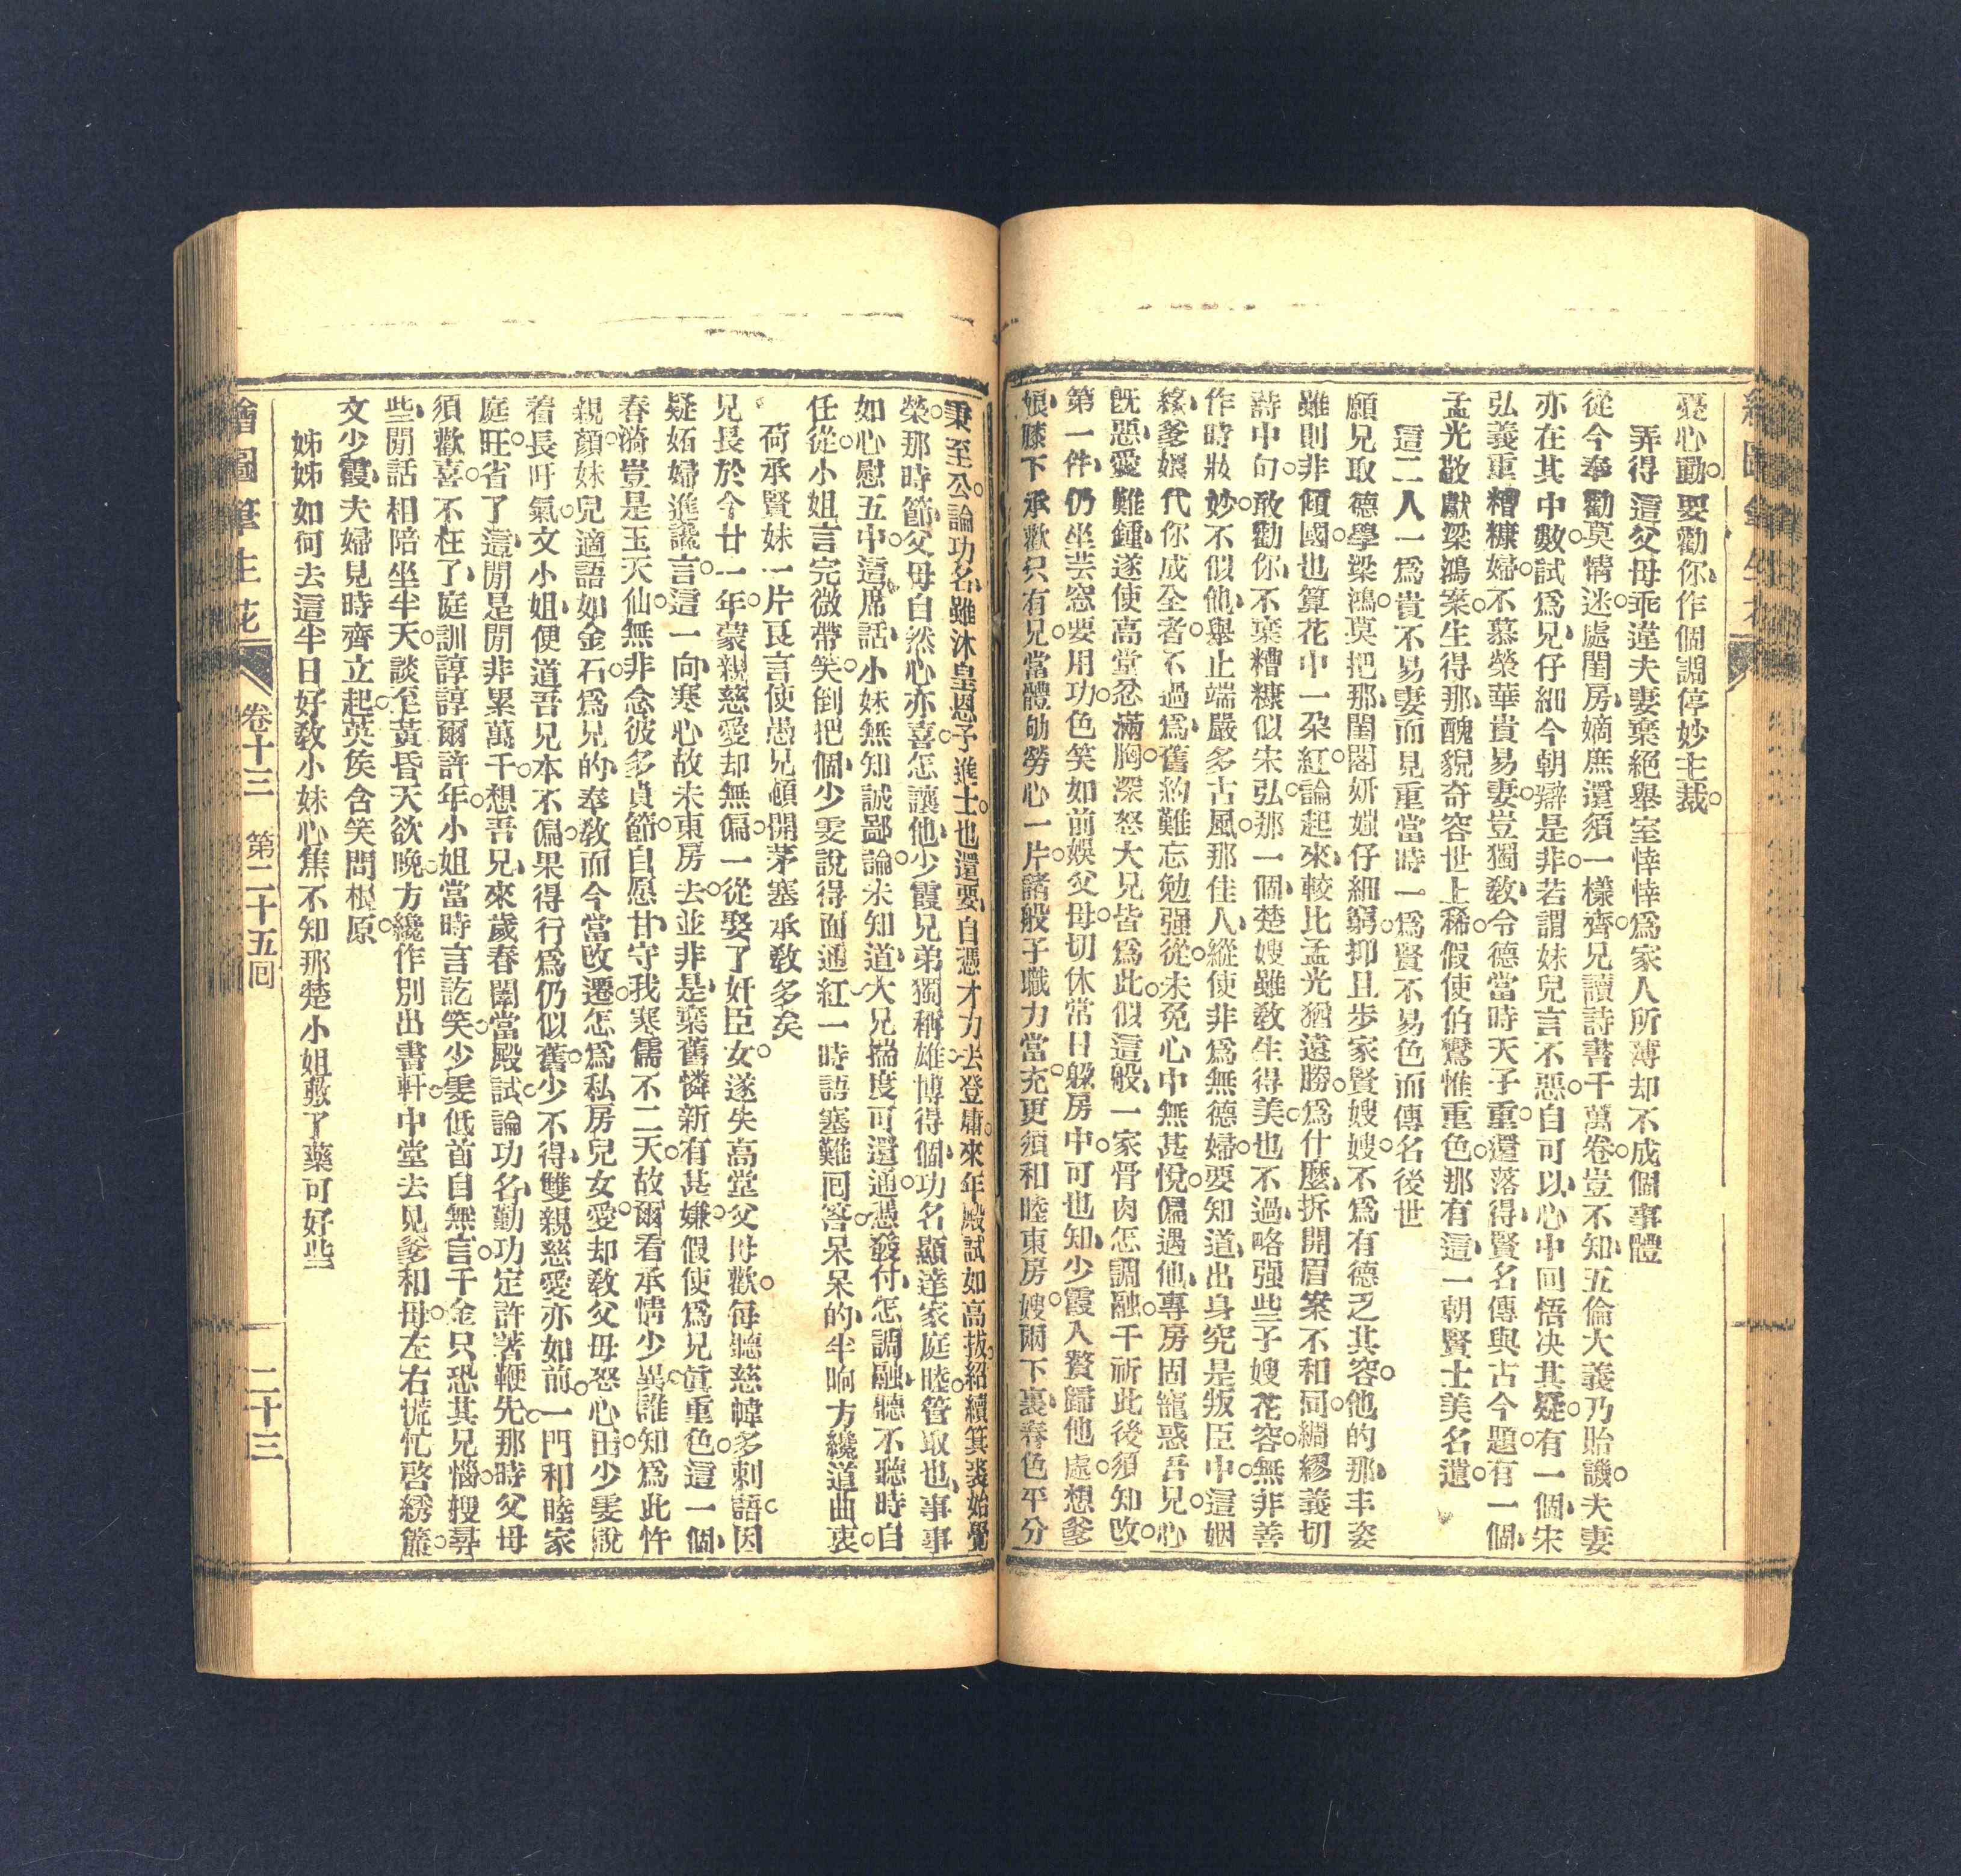 憂心動。要勸你、作個調停妙主裁。
弄得這父母乖違夫妻棄絕舉室悻悻爲家人所薄却不成個事體
從今奉勸莫情迷。處閨房、嫡庶還須一樣齊。兄讀詩書千萬卷。豈不知、五倫大義乃貽譏。夫妻
亦在其中數。試爲兄、仔細今朝辯是非。若謂妹兒言不惡。自可以、心中回悟决其疑。有一個、宋
弘義重糟糠婦。不慕榮華貴易妻。豈獨敎、令德當時天子重。還落得、賢名傳與古今題。有一個、
孟光敬獻梁鴻案。生得那、醜貌奇容世上稀。假使伯鸞惟重色。那有這、一朝賢士美名遺。
這二人一爲貴不易妻而見重當時一爲賢不易色而傳名後世
願兄取德學梁鴻。莫把那、閨閣妍媸仔細窮。抑且步家賢嫂嫂。不爲有德乏其容。他的那、丰姿
雖則非傾國。也算花中一朶紅。論起來、較比孟光猶遠勝。爲什麼、拆開眉案不和同。綢繆義切
詩中句。敢勸你、不棄糟糠似宋弘。那一個、楚嫂雖敎生得美。也不過、略强些子嫂花容。無非善
作時妝妙。不似他、舉止端嚴多古風。那佳人、縱使非爲無德婦。要知道、出身究是叛臣中。這姻
緣、爹娘代你成全者。不過爲、舊約難忘勉强從。未免心中無甚悅。偏遇他、專房固寵惑吾兄。心
旣惡、愛難鍾。遂使高堂忿滿胸。深怒大兄皆爲此。似這般、一家骨肉怎調融。千祈此後須知改。
第一件、仍坐芸窓要用功。色笑如前娛父母。切休常日躱房中。可也知、少霞入贅歸他處。想爹
娘、膝下承歡只有兄。當體劬勞心一片。諸般子職力當充。更須和睦東房嫂。爾下裏、春色平分
秉至公。論功名、雖沐皇恩子進士。也還要、自憑才力去登庸。來年殿試如高拔。紹續箕裘始覺
榮。那時節、父母自然心亦喜。怎讓他、少霞兄弟獨稱雄。博得個、功名顯達家庭睦。管取也、事事
如心慰五中。這席話、小妹無知誠鄙論。未知道、大兄揣度可還通。憑發付、怎調融。聽不聽時自
任從。小姐言完微帶笑。倒把個、少雯說得面通紅。一時語塞難回答。呆呆的、半晌方纔道曲衷。
荷承賢妹一片良言使愚兄頓開茅塞承敎多矣
兄長於今廿一年。蒙親慈愛却無偏。一從娶了奸臣女。遂失高堂父母歡。每聽慈幃多刺語。因
疑妬婦進讒言。這一向、寒心故未東房去。並非是、棄舊憐新有甚嫌。假使爲兄眞重色。這一個、
春漪豈是玉天仙。無非念彼多貞節。自愿甘、守我寒儒不二天。故爾看承情少異。誰知爲此忤
親顏。妹兒適語如金石。爲兄的、奉敎而今當改遷。怎爲私房兒女愛。却敎父母惡心田。少雯說
着長吁氣。文小姐、便道吾兄本不偏。果得行爲仍似舊。少不得、雙親慈愛亦如前。一門和睦家
庭旺。省了這、閒是閒非累萬千。想吾兄、來歲春闈當殿試。論功名、勤功定許著鞭先。那時父母
須歡喜。不枉了、庭訓諄諄爾許年。小姐當時言訖笑。少雯低首自無言。千金只恐其兄惱。搜尋
些、閒話相陪坐半天。談至黃昏天欲晚。方纔作別出書軒。中堂去見爹和母。左右慌忙啓綉簾。
文少霞、夫婦見時齊立起。英矦含笑問根原。
姊姊如何去這半日好敎小妹心焦不知那楚小姐敷了藥可好些
繪圖筆生花 卷十三 第二十五回 二十三